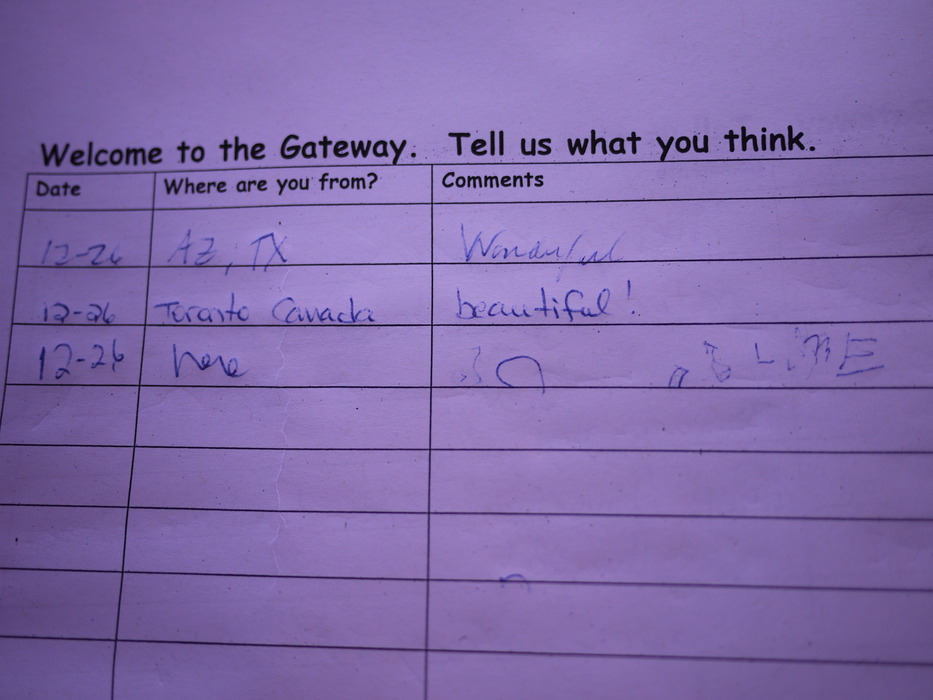 Welcome to the Gateway. Tell us what you think.
Date Where are you from? Comments
12-26 AZ, TX Wonderful
12-26 Toronto Canada beautiful!
12-26 here